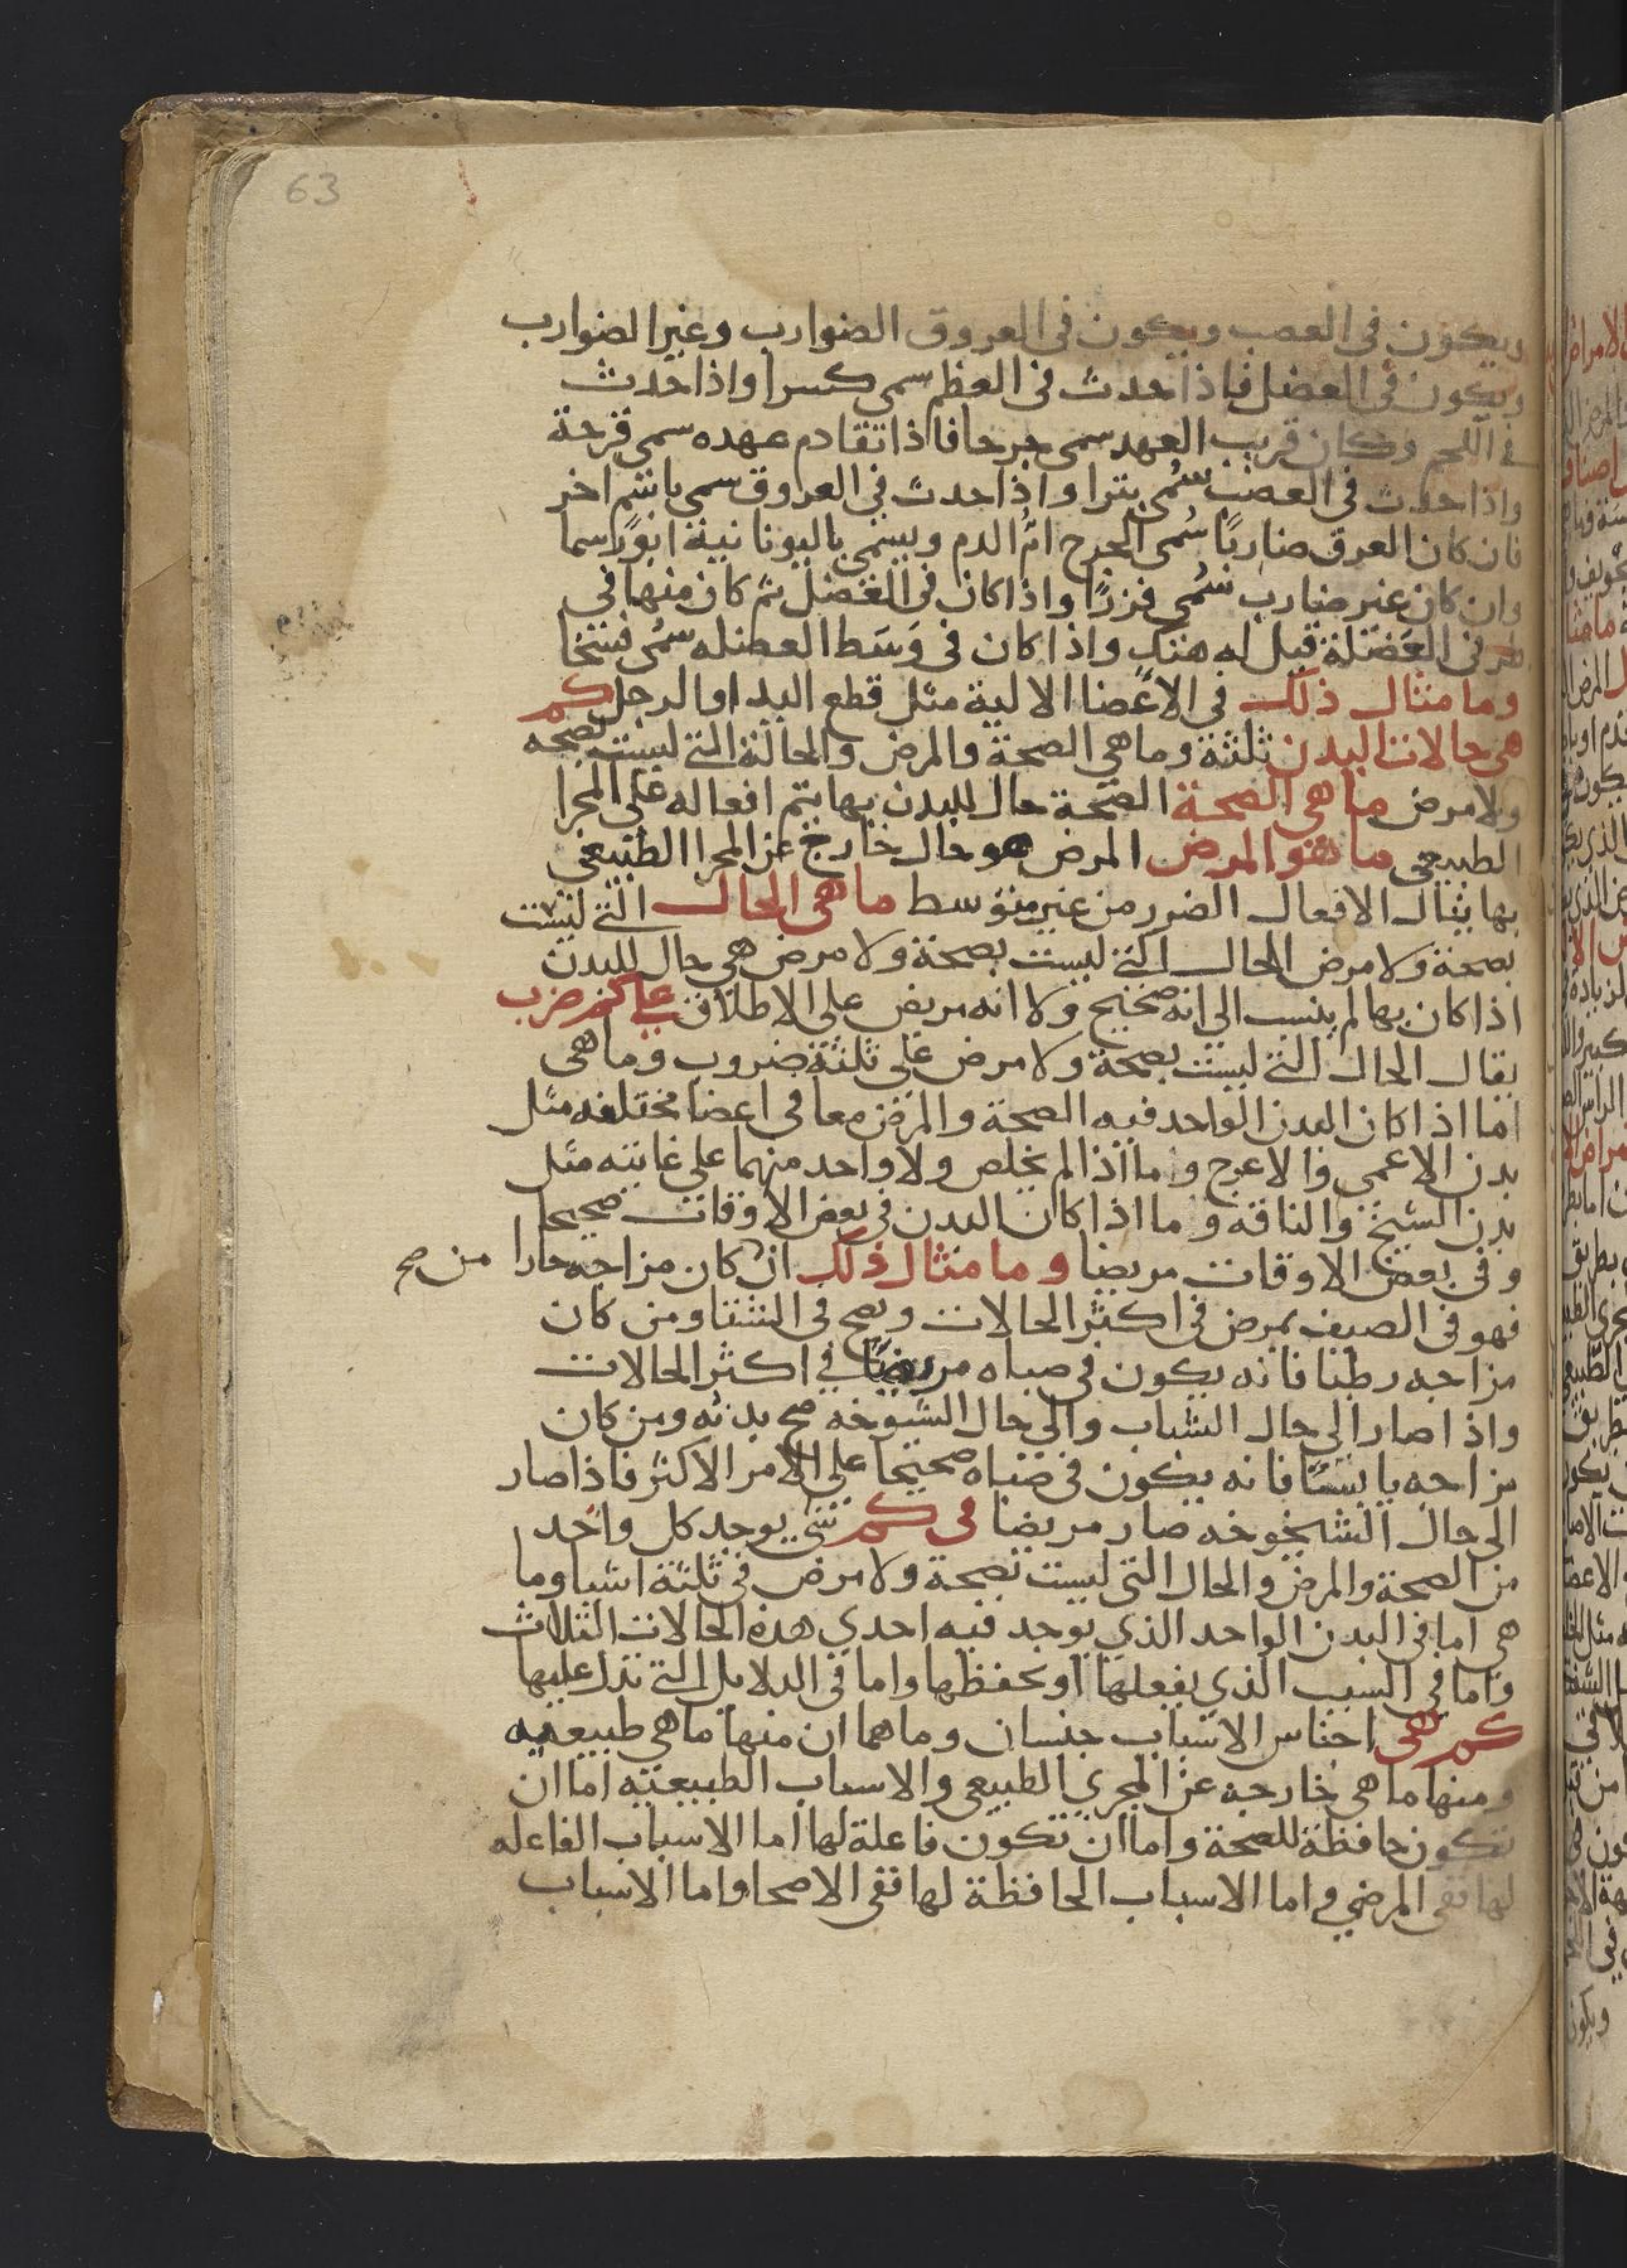 63
ويكون في العصب ويكون في العروق الضوارب وغير الضوارب
ويكون في العضل فاذا حدث في العظم سمى كسرا واذا حدث
في اللحم وكان قريب العهد سمى جرحا فاذا تقادم عهده سمى قرحة
واذا حدث في العصب سُمى بترا واذا حدث في العروق سمى باسم اخر
فان كان العرق ضاربًا سُمى الجرح امُّ الدم ويسمى باليونانية ابورسما
وان كان غير ضارب سُمى فزرًا واذا كان في العضل ثم كان منها في
طرف العَضَلة قيل له هتك واذا كان في وَسَط العضله سمُى فسخا
وما مثال ذلك في الاعَضا الالية مثل قطع اليد او الرجل كم
هي حالات البدن ثلثة وما هي الصحة والمرض والحالة التي ليست بصحه
ولا مرض ما هي الصحة الصحة حال للبدن بها يتم افعاله على المجرا
الطبيعى ما هو المرض المرض هو حال خارج عن المجرا الطبيعي
بها ينال الافعال الضرر من غير متوسط ما هي الحال التي ليست
بصحة ولا مرض الحال التي ليست بصحة ولا مرض هي حال للبدن
اذا كان بها لم ينسب الي انه صحيح ولا انه مريض على الاطلاق على كم ضرب
يقال الحال التي ليست بصحة ولا مرض على ثلثة ضروب وما هى
اما اذا كان البدن الواحد فيه الصحة والمرض معا في اعضا مختلفه مثل
بدن الاعمى والاعرج واما اذا لم يخلص ولا واحد منهما على غايته مثل
بدن الشيخ والناقه وما اذا كان البدن في بعض الاوقات صحيحا
وفي بعض الاوقات مريضا وما مثال ذلك ان كان مزاجه حارا من صح
فهو في الصيف يمرض في اكثر الحالات ويصح في الشتا ومن كان
مزاجه رطبا فانه يكون في صباه مريضًا في اكثر الحالات
واذا صار الي حال الشباب والي حال الشيوخه صح بدنه ومن كان
مزاجه يابسًا فانه يكون في صباه صحيحا على الامر الاكثر فاذا صار
الى حال الشيخوخه صار مريضا في كم شي يوجد كل واحد
من الصحة والمرض والحال التي ليست بصحة ولا مرض في ثلثة اشيا وما
هي اما في البدن الواحد الذي يوجد فيه احدي هذه الحالات الثلاث
واما في السبب الذي يفعلها او يحفظها واما في الدلايل التي تدل عليها
كم هى اجناس الاسباب جنسان وما هما ان منها ما هي طبيعيه
ومنها ما هى خارجه عن المجري الطبيعي والاسباب الطبيعيه اما ان
تكون حافظة للصحة واما ان تكون فاعلة لها اما الاسباب الفاعله
لها ففي المرضي واما الاسباب الحافظة لها ففي الاصحا واما الاسباب